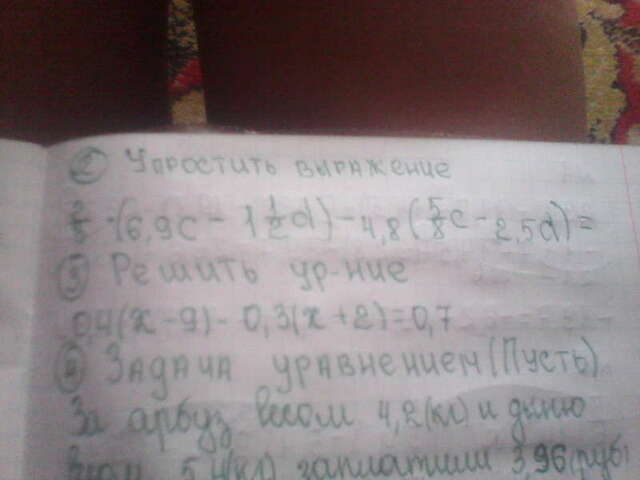 Упростить выражение
·(6,9c - 1 1/2 d) - 4,8(5/8 c - 2,5d) =
Решить ур-ние
0,4(x - 9) - 0,3(x + 2) = 0,7
Задача уравнением (Пусть)
За арбуз весом 4,2(кг) и дыню
весом 5,4(кг) заплатили 3,96(руб)